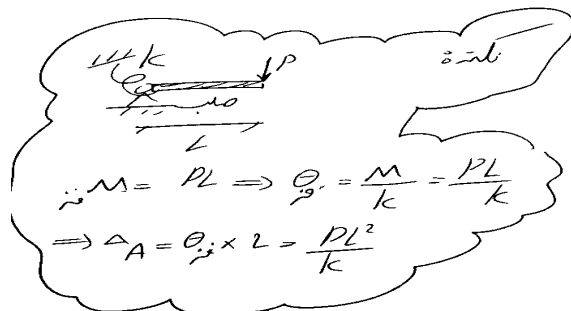 نکته:
K
P
صلب
L
M فنر = PL ⇒ θ فنر = M/K = PL/K
⇒ Δ_A = θ فنر × L = PL²/K